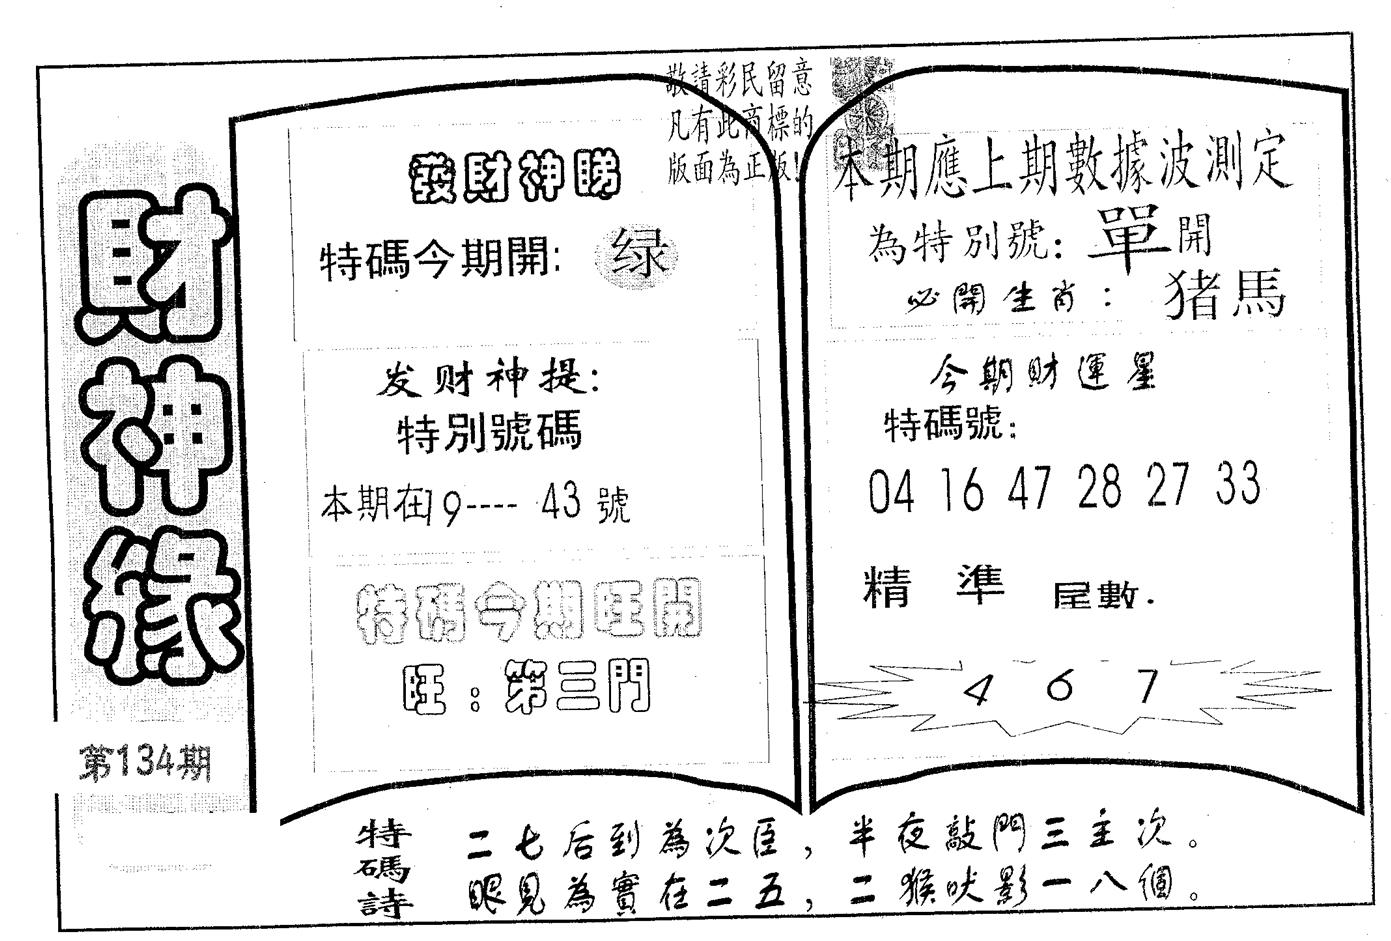 財神緣
第134期
敬請彩民留意
凡有此商標的
版面為正版!
發財神睇
特碼今期開:绿
发财神提:
特別號碼
本期在19----43號
特碼今期旺開
旺:第三門
本期應上期數據波測定
為特別號:單開
必開生肖:猪馬
今期財運星
特碼號:
04 16 47 28 27 33
精準尾數.
4 6 7
特碼詩
二七后到為次臣,半夜敲門三主次。
眼見為實在二五,二猴吠影一八個。